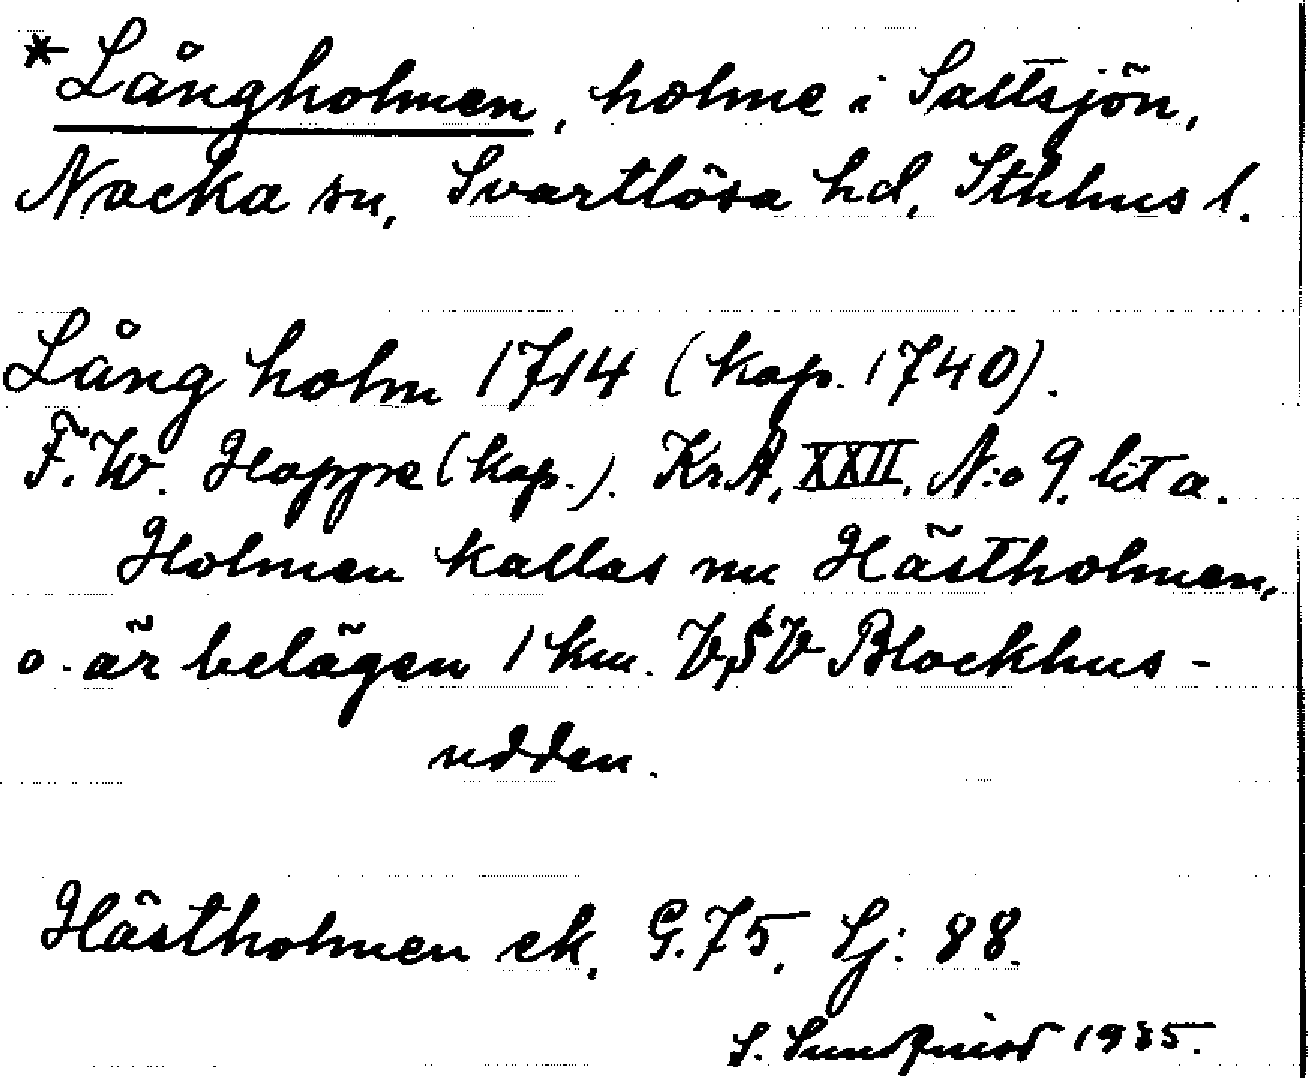 *Långholmen, holme i Saltsjön,
Nacka sn, Svartlösa hd, Sthlms l.
Lång holm 1714 (kop. 1740).
F.W. Hoppe (kop.). Kr.A. XXII. N:o 9. lit a.
Holmen kallas nu Hästholmen,
o. är belägen 1 km. VSV Blockhus-
udden.
Hästholmen ek. G.75. Sj: 88.
S. Sundquist 1935.